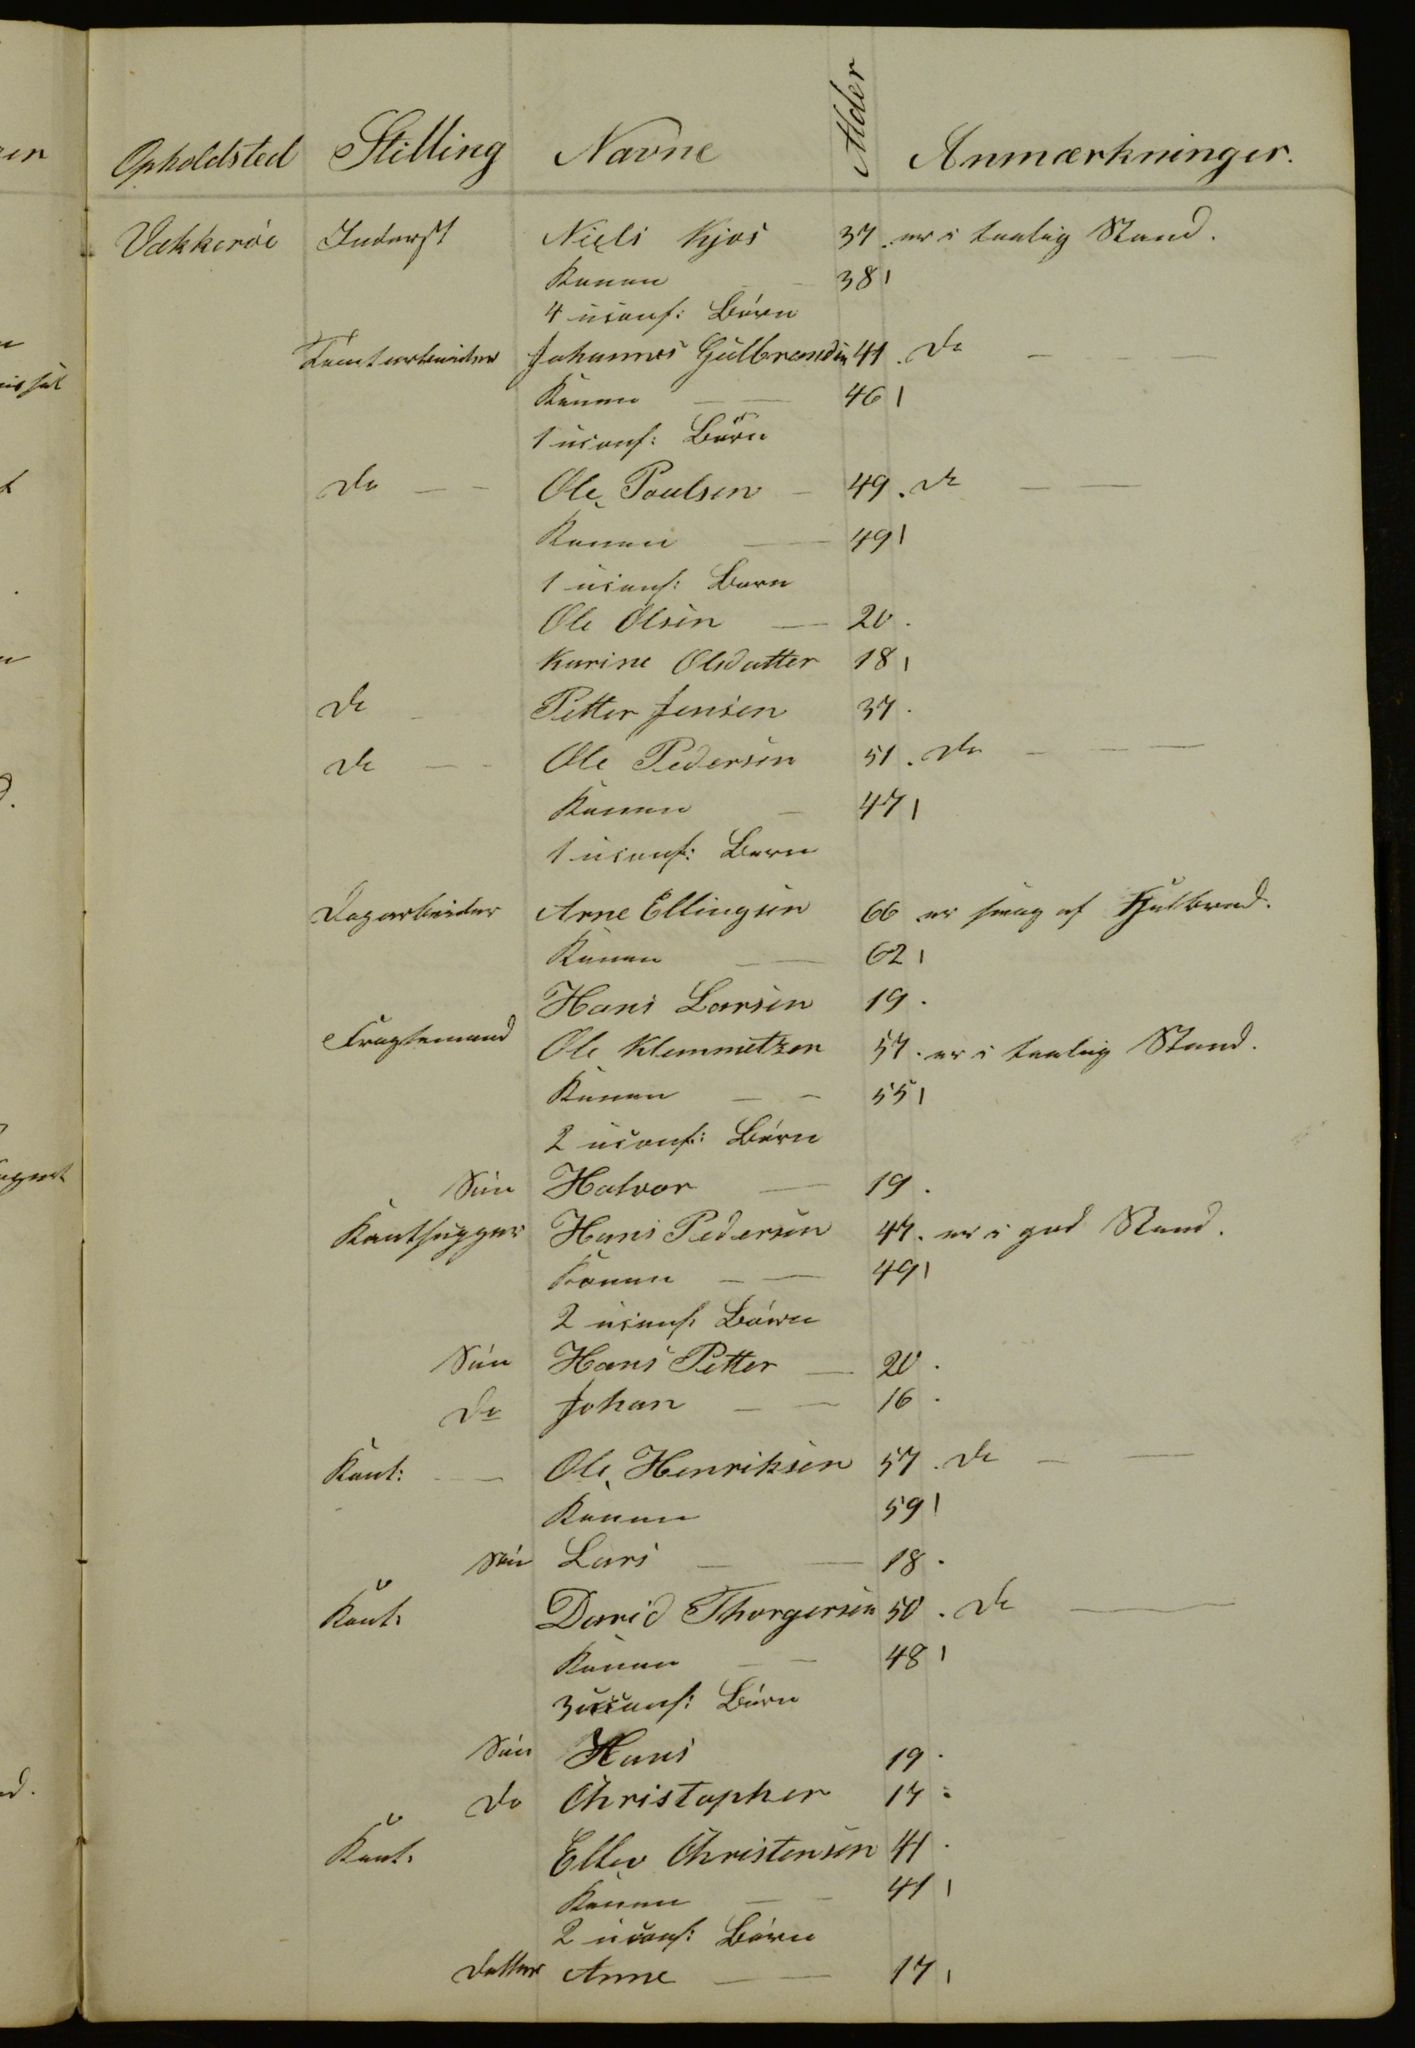 Opholdsted Stilling Navne Alder Anmærkninger.
Vækkerøe Inderst Niels Kjos 37. er i taalig Stand.
Konen 38
4 uconf: Børn
Tomtearbeider Johannes Gulbrandsen 41. Do
Konen 46
1 uconf: Børn
Do Ole Poulsen 49. Do
Konen 49
1 uconf: Barn
Ole Olsen 20.
Karine Olsdatter 18
Do Petter Jensen 37.
Do Ole Pedersen 51. Do
Konen 47
1 uconf: Barn
Dagarbeider Arne Ellingsen 66 er svag af
Konen 62
Hans Larsen 19.
Fragtemand Ole Klemmetzen 57. er i taalig Stand.
Konen 55
2 uconf: Børn
Søn Halvor 19.
Kanthugger Hans Pedersen 47. er i god Stand.
Konen 49
2 uconf: Børn
Søn Hans Petter 20.
Do Johan 16.
Kant: Ole Henriksen 57. Do
Konen 59
Søn Lars 18.
Kant: David Thorgersen 50. Do
Konen 48
3 uconf: Børn
Søn Hans 19.
Do Christopher 17.
Kant: Ellev Christensen 41.
Konen 41
2 uconf: Børn
Datter Anne 17